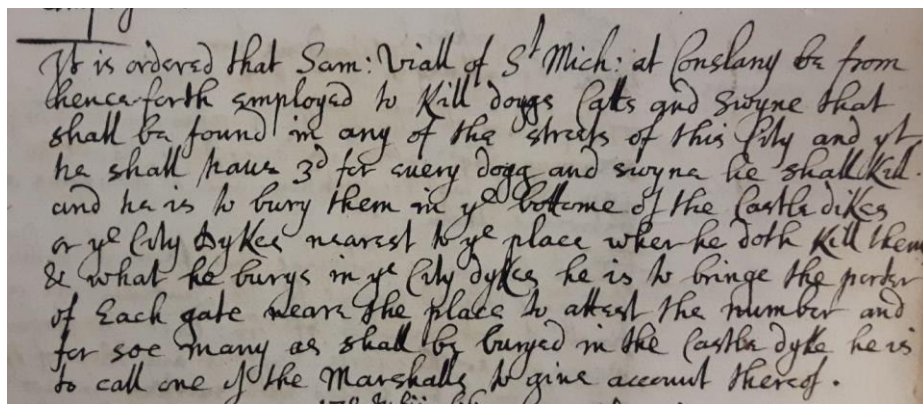 It is ordered that Sam: Viall of St Mich: at Conslany be from
hence forth employed to Kill doggs Catts and Swyne that
shall be found in any of the streets of this City and yt
he shall have 3d for every dogg and swyne he shall Kill.
and he is to bury them in ye bottome of the Castle dikes
or ye City Dykes nearest to ye place wher he doth Kill them
& what he burys in ye City dykes he is to bringe the porter
of Each gate neare the place to attest the number and
for soe many as shall be buryed in the Castle dyke he is
to call one of the Marshalls to give account thereof.